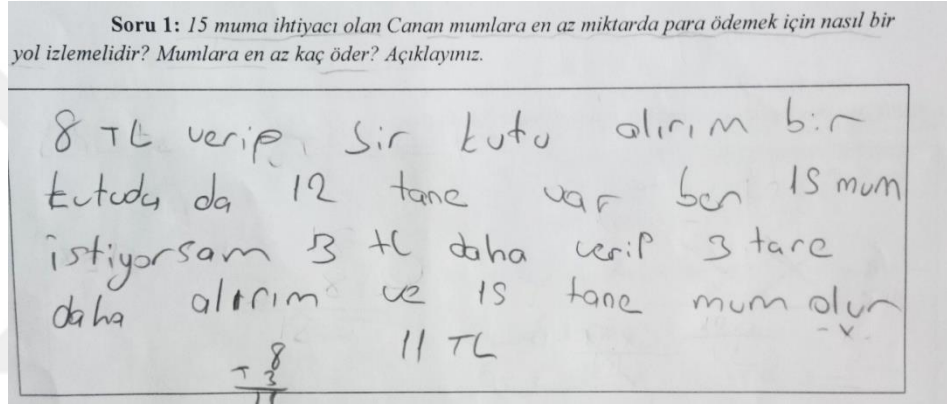 Soru 1: 15 muma ihtiyacı olan Canan mumlara en az miktarda para ödemek için nasıl bir
yol izlemelidir? Mumlara en az kaç öder? Açıklayınız.
8 TL verip bir kutu alırım bir
kutuda da 12 tane var ben 15 mum
istiyorsam 3 tl daha verip 3 tane
daha alırım ve 15 tane mum olur
8 11 TL
+ 3
11